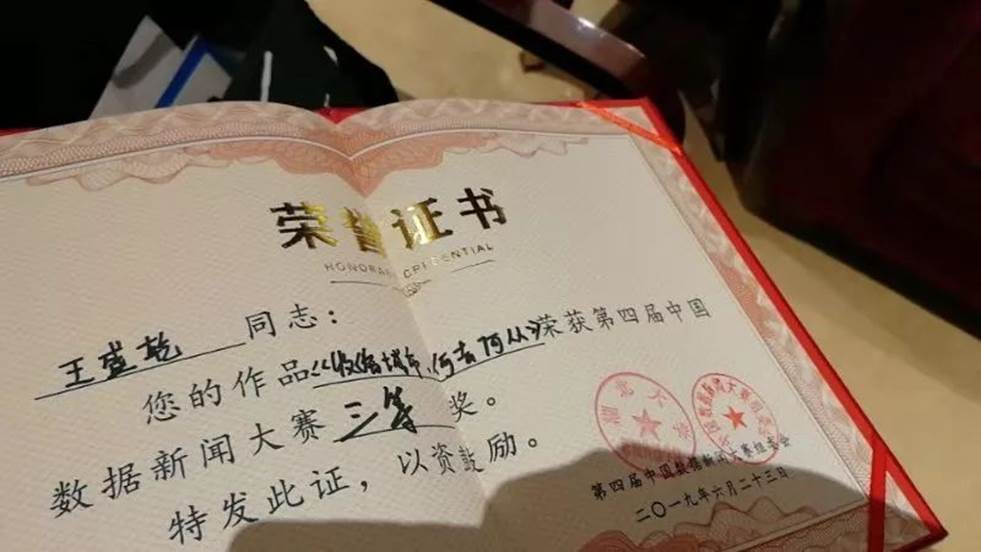 荣誉证书
HONORARY CREDENTIAL
王盛乾 同志:
您的作品《收缩城市,何去何从》荣获第四届中国
数据新闻大赛三等奖。
特发此证,以资鼓励。
湖北大学
第四届中国数据新闻大赛组委会
二〇一九年六月二十三日